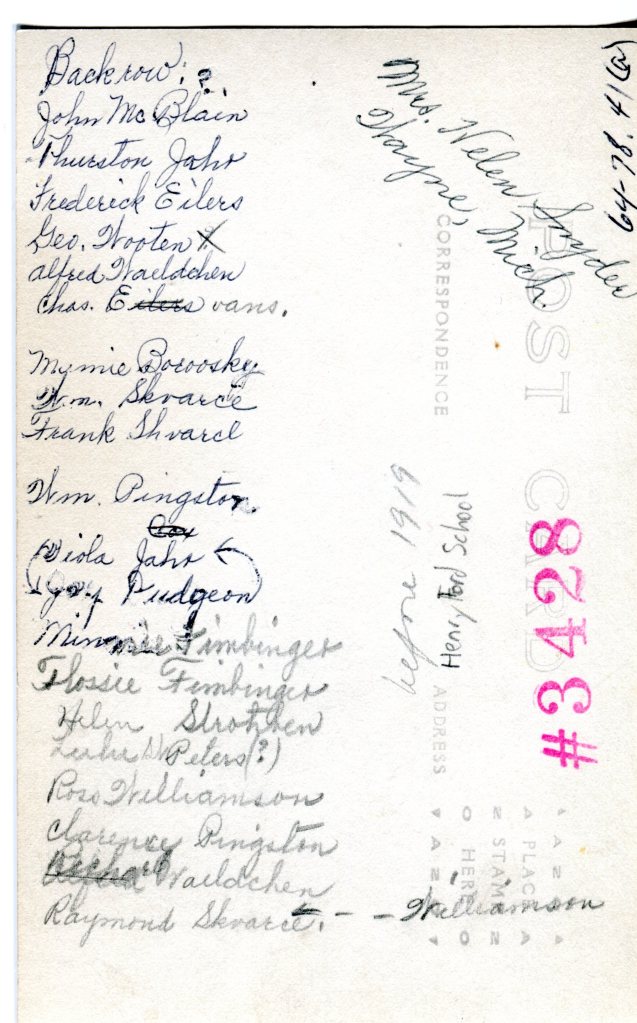 Backrow: ?
John McBlain
Thurston Jahr
Frederick Eilers
Geo. Wooten X
Alfred Waeldchen
Chas. Eilers vans.
Mymie Borovsky
Wm. Skvarce
Frank Skvarce
Wm. Pingston
Cox
Viola Jahr
Pudgeon
Minnie Fimbinger
Flossie Fimbinger
Helen Strohben
Peters (?)
Ross Williamson
Clarence Pingston
Waeldchen
Raymond Skvarce. ← - - Williamson
Mrs. Helen Snyder
Wayne, Mich.
64-78.41(a)
POST CARD
CORRESPONDENCE
ADDRESS
before 1919
Henry Ford School
#3428
AZO
PLACE
STAMP
HERE
AZO